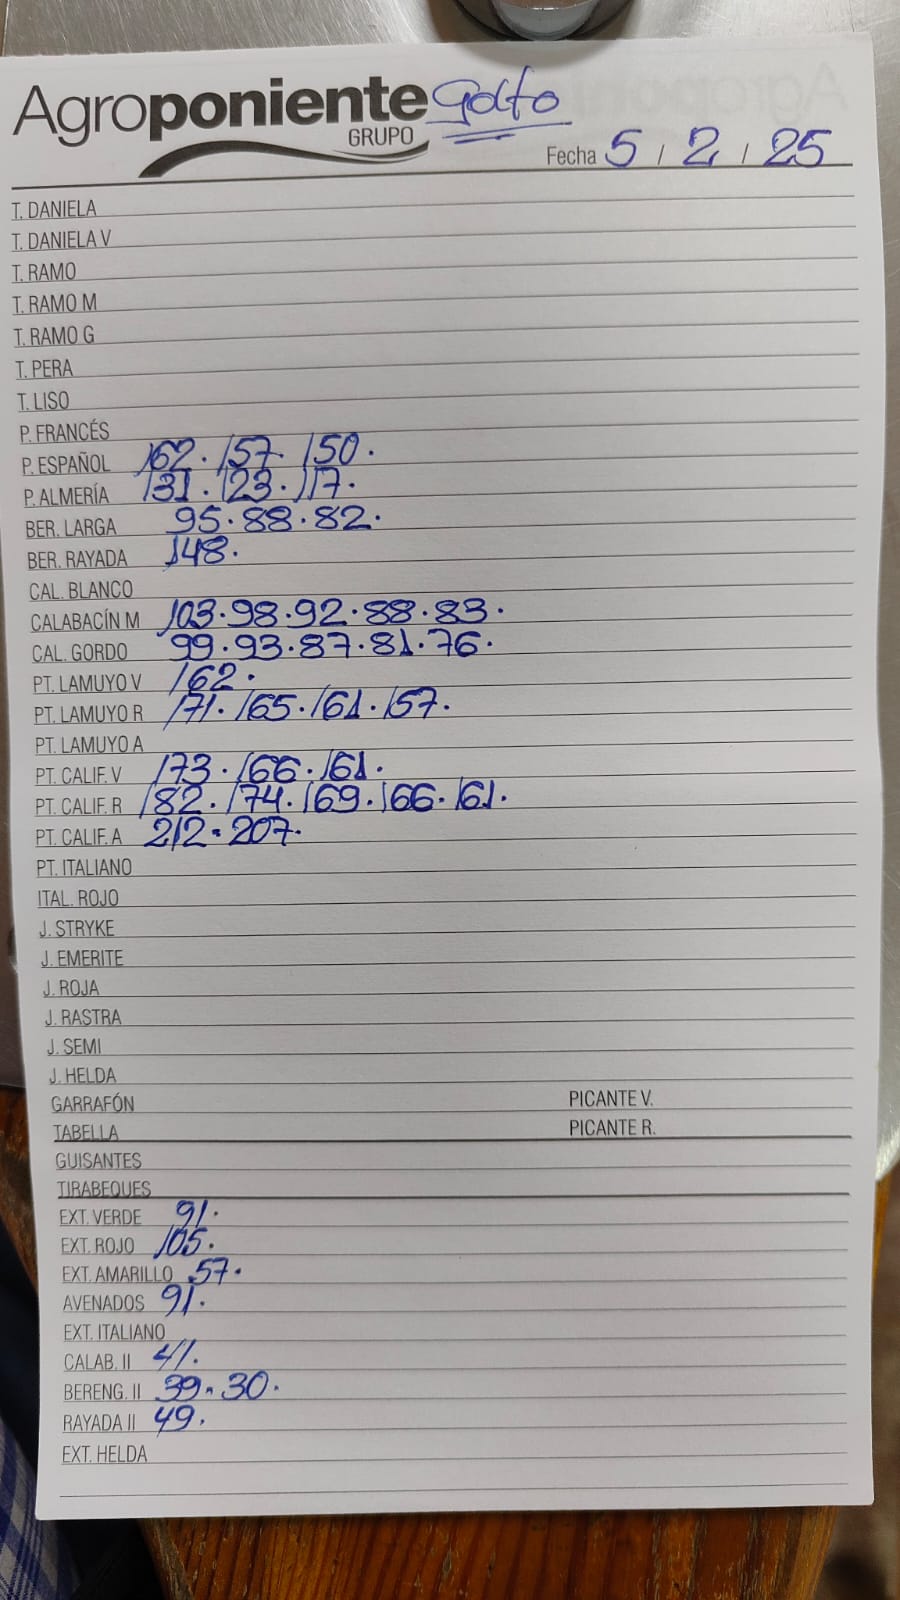 Agroponiente Golfo
GRUPO
Fecha 5 / 2 / 25
T. DANIELA
T. DANIELA V
T. RAMO
T. RAMO M
T. RAMO G
T. PERA
T. LISO
P. FRANCÉS
P. ESPAÑOL 162. 157. 150.
P. ALMERÍA 131. 123. 117.
BER. LARGA 95. 88. 82.
BER. RAYADA 148.
CAL. BLANCO
CALABACÍN M 103. 98. 92. 88. 83.
CAL. GORDO 99. 93. 87. 81. 76.
PT. LAMUYO V 162.
PT. LAMUYO R 171. 165. 161. 157.
PT. LAMUYO A
PT. CALIF. V 173. 166. 161.
PT. CALIF. R 182. 174. 169. 166. 161.
PT. CALIF. A 212. 207.
PT. ITALIANO
ITAL. ROJO
J. STRYKE
J. EMERITE
J. ROJA
J. RASTRA
J. SEMI
J. HELDA
GARRAFÓN PICANTE V.
TABELLA PICANTE R.
GUISANTES
TIRABEQUES
EXT. VERDE 91.
EXT. ROJO 105.
EXT. AMARILLO 57.
AVENADOS 91.
EXT. ITALIANO
CALAB. II 41.
BERENG. II 39. 30.
RAYADA II 49.
EXT. HELDA